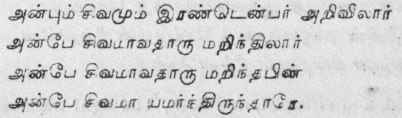 அன்பும் சிவமும் இரண்டென்பர் அறிவிலார்
அன்பே சிவமாவதாரு மறிந்திலார்
அன்பே சிவமாவதாரு மறிந்தபின்
அன்பே சிவமா யமர்ந்திருந்தாரே.